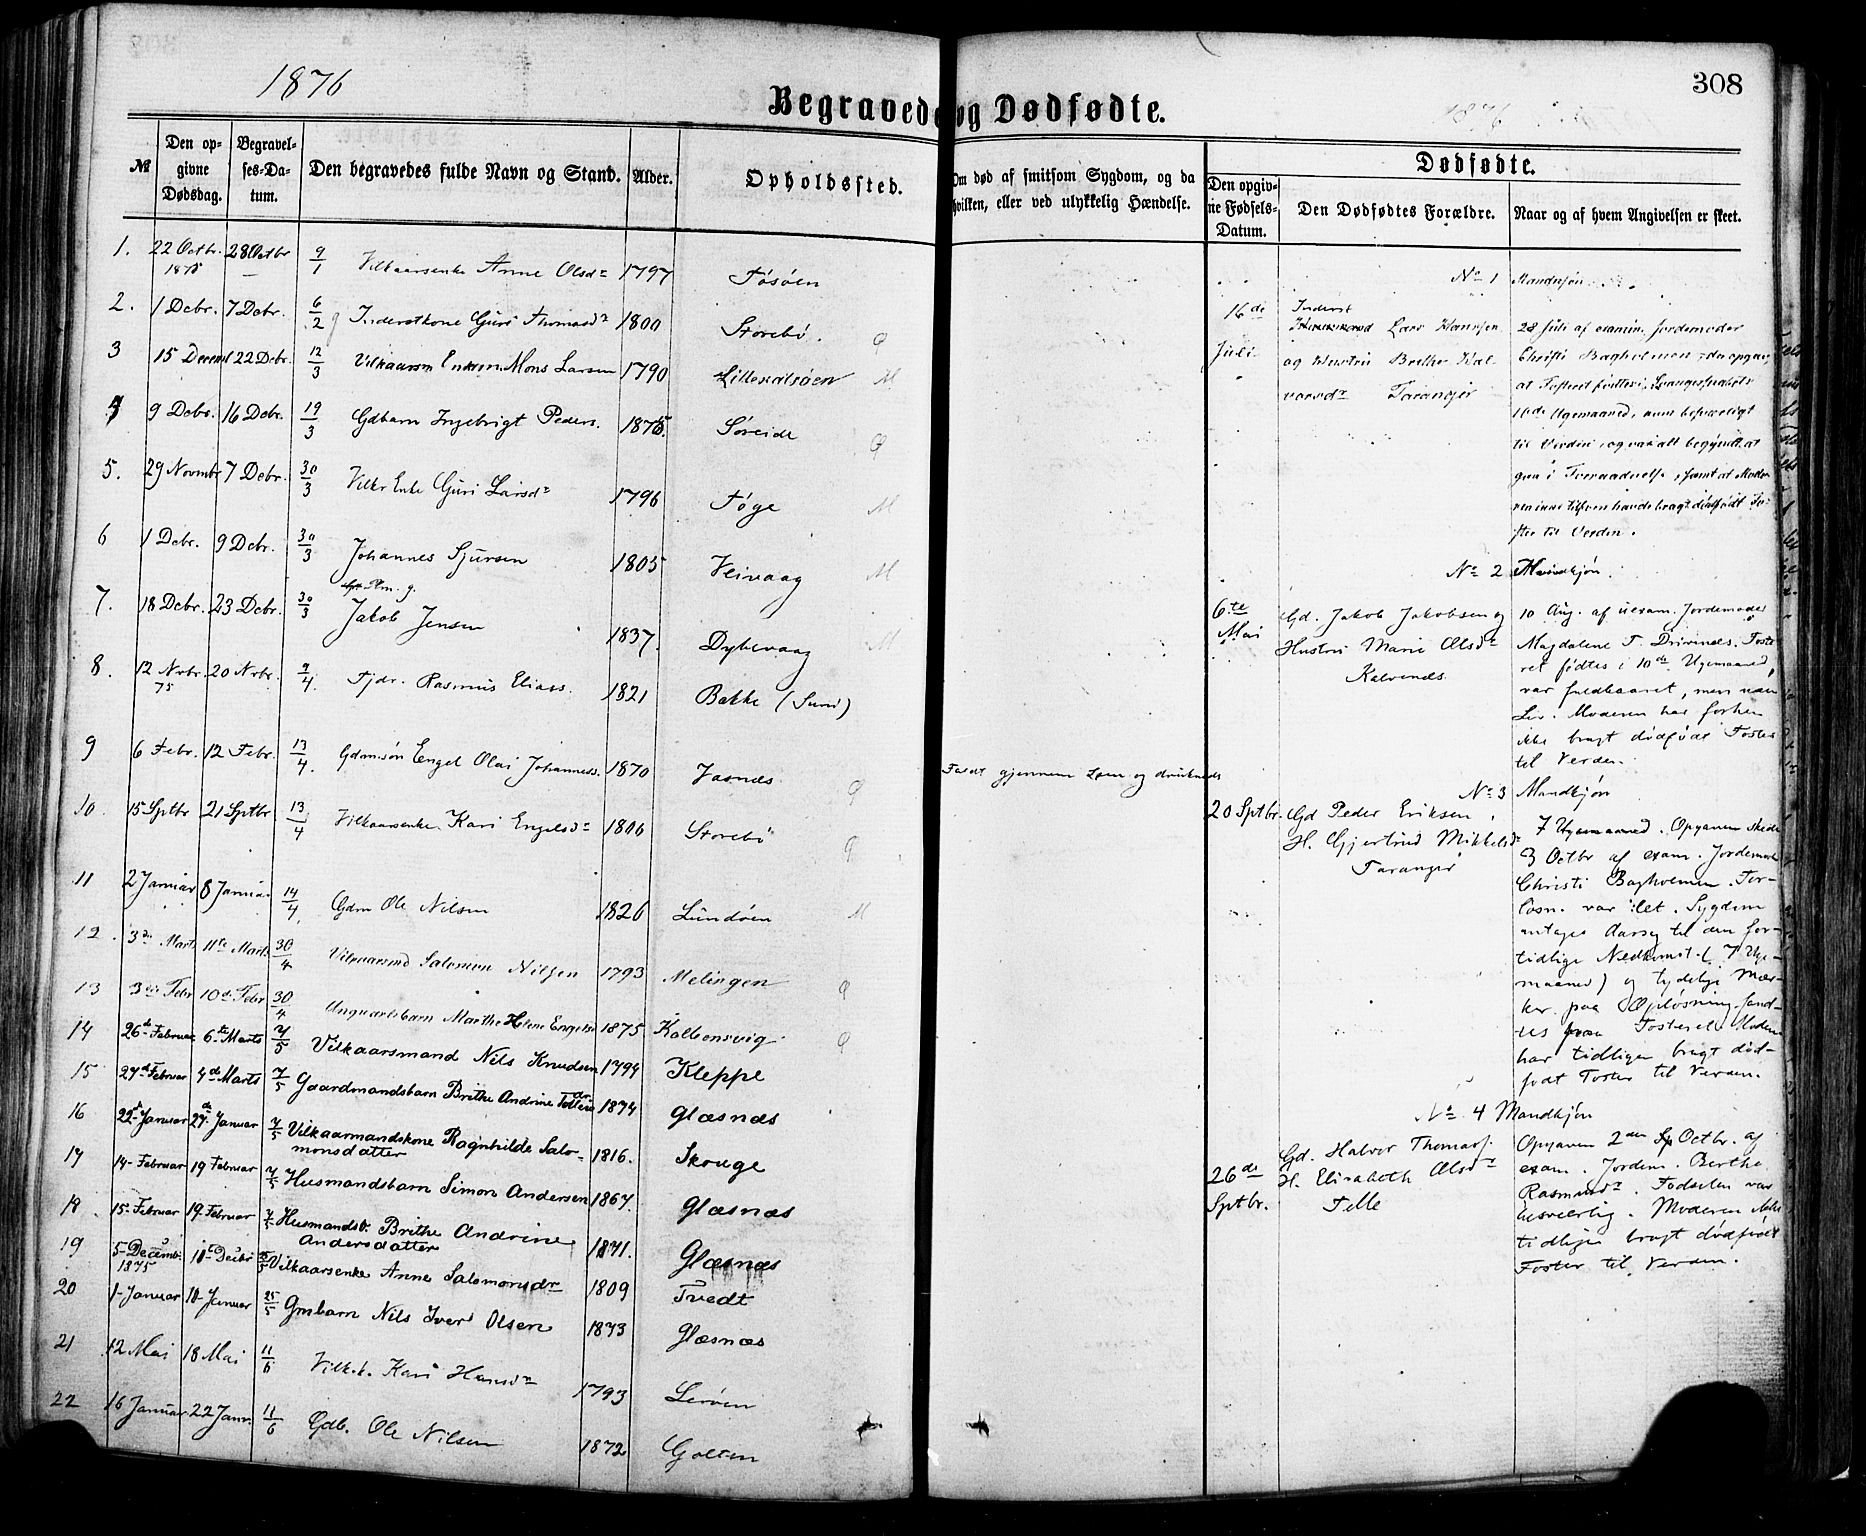 1876
308
Begravede og Dødfødte.
№
Den opgivne Dødsdag.
Begravelses-Datum.
Den begravedes fulde Navn og Stand.
Alder.
Opholdssted.
Om død af smitsom Sygdom, og da hvilken, eller ved ulykkelig Hændelse.
Dødfødte.
Den opgivne Fødsels-Datum.
Den Dødfødtes Forældre.
Naar og af hvem Angivelsen er skeet.
1. 22 Octbr. 1875 28 Octbr 9/1 Vilkaarsenke Anne Olsdr 1797 Tøsøen
2. 1 Debr. 7 Debr. 6/2 Inderstkone Guri Thomasdr 1800 Storebø. Q
3 15 Decemb 22 Debr. 12/3 Mons Larsen 1790 M
4 9 Debr. 16 Debr. 19/3 Gdbarn Ingebrigt Peders. 1875. Søreide Q
5. 29 Novmbr 7 Debr. 30/3 Vilkr Enke Guri Larsdr 1796 Føge M
6 1 Debr. 9 Debr. 30/3 Johannes Sjursen 1805 Veivaag M
7. 18 Debr. 23 Debr. 30/3 Jakob Jensen 1837. Dybevaag M
8. 12 Nvbr. 75 20 Nvbr. 7/4. Fjdr. Rasmus Eliass. 1821 Bakke (Sund)
9 6 Febr. 12 Febr. 13/4. Gdmsøn Engel Olai Johanness. 1870 Vasnæs Q Faldt gjennem Isen og druknede
10. 15 Sptbr 21 Sptbr 13/4 Vilkaarsenke Kari Engelsdr 1806 Storebø Q
11 2 Januar 8 Januar 14/4 Gdm Ole Nilsen 1826 Lundøen M
12. 3die Marts 11te Marts 30/4 Vilkaarsmd Salomon Nilsen 1793 Melingen Q
13 3die Febr 10de Febr 30/4 Marthe Helene Engels 1875 Kolbensvig Q
14 26de Februar 6te Marts 7/5 Vilkaarsmand Nils Knudsen 1794 Kleppe
15 27de Februar 4de Marts 7/5 Gaardmandsbarn Brithe Andrine 1874 Glæsnæs
16 22de Januar 27de Januar 7/5 Vilkaarmandskone Ragnhilde Salomonsdatter 1816. Skouge
17 14 Februar 19 Februar 7/5 Husmandsbarn Simon Andersen 1867. Glæsnæs
18. 15 Februar 19. Februar 7/5 Husmandsb. Brithe Andrine Andersdatter 1871. Glæsnæs
19 5 Decemb. 1875 Vilkaarsenke Anne Salomonsdr 1809 Tvedt
20 1 Januar 10 Januar 25/5 Gmbarn Nils Iver Olsen 1873 Glæsnæs
21 12 Mai 18 Mai 11/6 Vilk.k. Kari Hansdr 1793 Lerøen
22 16 Januar 22 Janr. 11/6 Gdb. Ole Nilsen 1872 Golten
No 1 Mandkjøn
16de Juli
Inderst
Lars Hansen
og Hustru Brithe
Tarangér
28 Juli af examin. Jordemoder
Christi Bagholmen, der opgav,
at Fosteret fødtes i Svangerskabets
10de Ugemaaned,
til Verden, og var alt begyndt at
gaa i Forraadnelse, samt at Moderen
ikke tilforn havde bragt dødfødt Foster
til Verden.
No 2 Mandkjøn.
6te Mai
Gd. Jakob Jakobsen og
Hustru Marie Olsdr
Kalvenæs
10 Aug. af uexam. Jordemoder
Magdalene T. Drivenæs. Foste-
ret fødtes i 10de Ugemaaned,
var fuldbaaret, men uden
Liv. Moderen har forhen
ikke bragt dødfødt Foster
til Verden.
No 3 Mandkjøn
20 Sptbr.
Gd Peder Eriksen,
H. Gjertrud Mikkelsdr
Tarangér
7 Ugemaaned. Opgaven skede
3 Octbr af exam. Jordemoder
Christi Bagholmen. For-
løsn. var let. Sygdom
antages Aarsag til den for-
tidlige Nedkomst. (7 Uge-
maaned) og tydelige Mær-
ker paa Opløsning fand-
tes paa Fosteret. Moderen
har tidligere bragt død-
født Foster til Verden.
No 4 Mandkjøn
26de Sptbr.
Gd. Halvor Thomass.
H. Elisabeth Olsdr
Telle
Opgaven 2den Octbr. af
exam. Jordem. Berthe
Rasmusdr. Fødselen var
besværlig. Moderen ikke
tidligere bragt dødfødt
Foster til Verden.